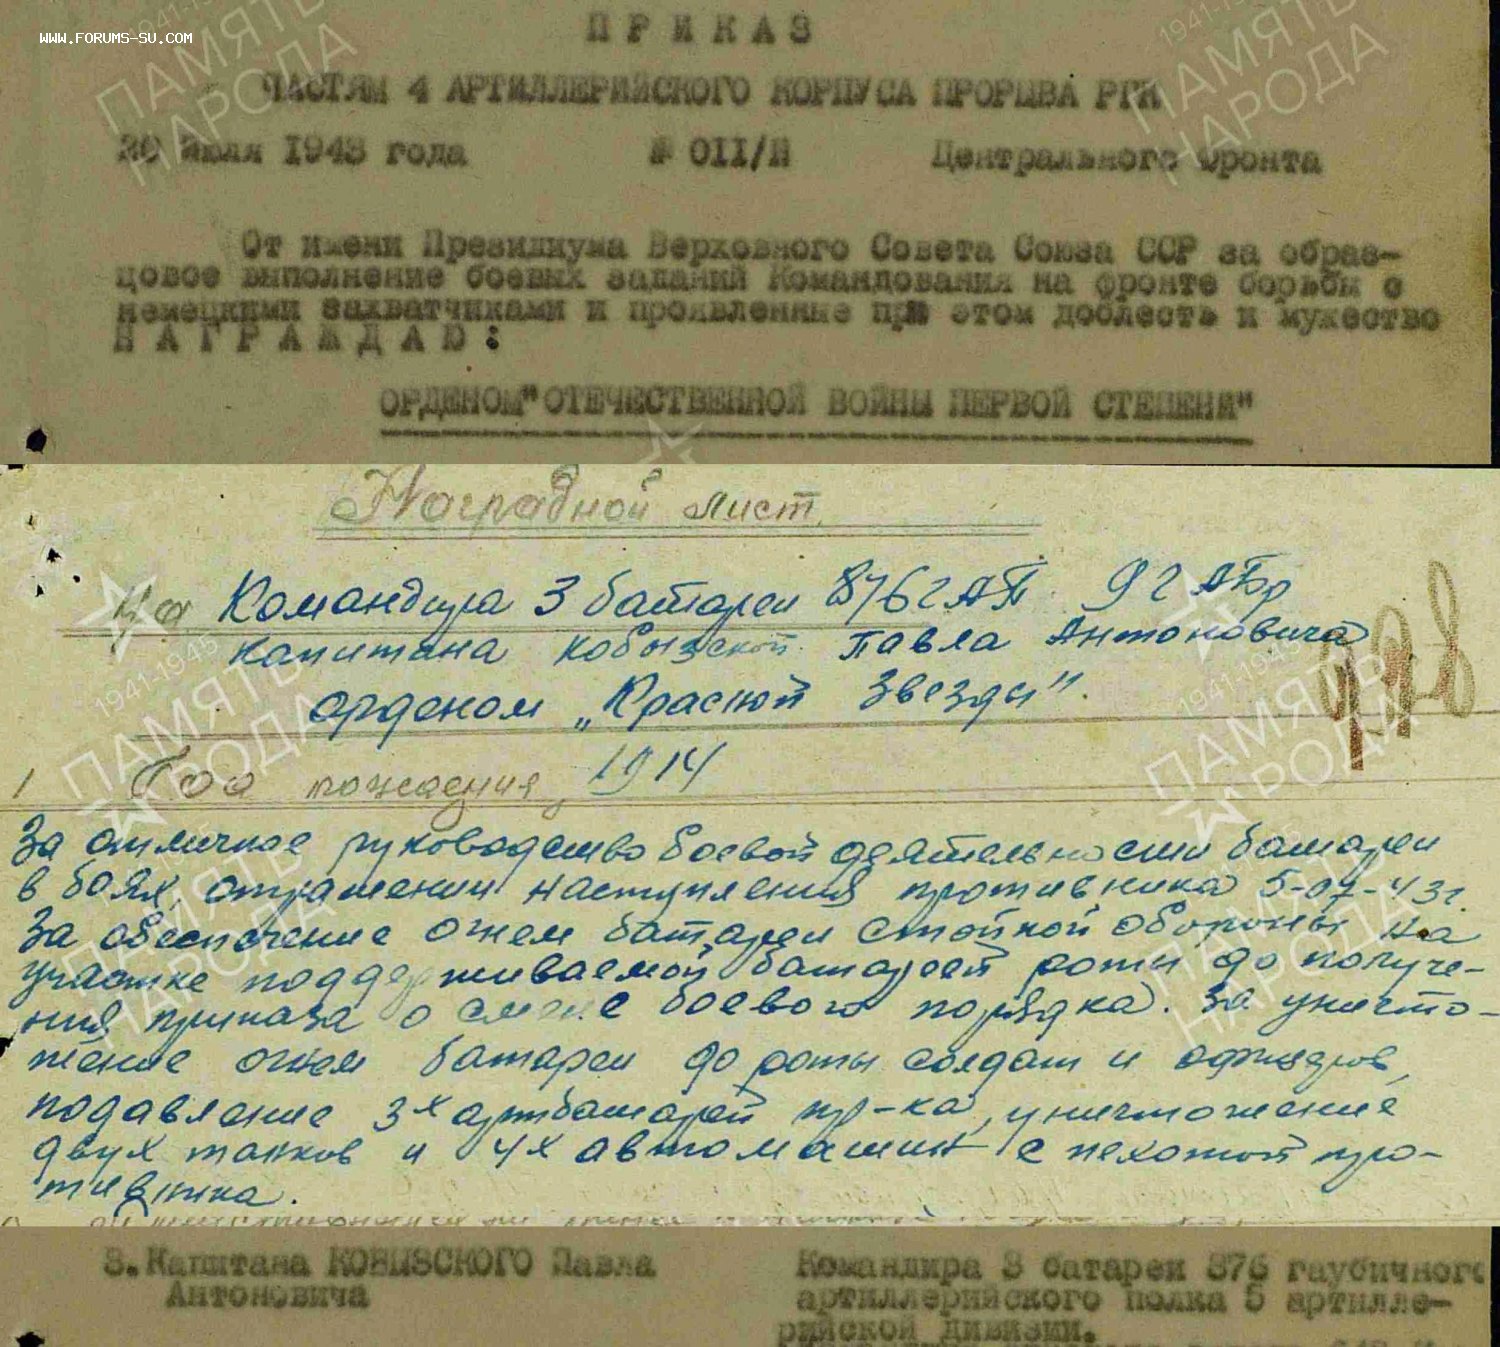 www.forums-su.com
ПРИКАЗ
ЧАСТЯМ 4 АРТИЛЛЕРИЙСКОГО КОРПУСА ПРОРЫВА РГК
20 июля 1943 года № 011/Н Центрального Фронта
От имени Президиума Верховного Совета Союза ССР за образ-
цовое выполнение боевых заданий Командования на фронте борьбы с
немецкими захватчиками и проявленные при этом доблесть и мужество
НАГРАЖДАЮ:
ОРДЕНОМ "ОТЕЧЕСТВЕННОЙ ВОЙНЫ ПЕРВОЙ СТЕПЕНИ"
Наградной лист
На Командира 3 батареи 876 ГАП 9 ГАБр
капитана Кобызской Павла Антоновича
орденом „Красной Звезды".
1 Год рождения 1914
За отличное руководство боевой деятельности батареи
в боях, отражении наступления противника 5-07-43г.
За обеспечение огнем батареи стойкой обороны на
участке поддерживаемой батареей роты до получе-
ния приказа о смене боевого порядка. За уничто-
жение огнем батареи до роты солдат и офицеров,
подавление 3х артбатарей пр-ка, уничтожение
двух танков и 4х автомашин с пехотой про-
тивника.
3. Капитана КОБЫЗСКОГО Павла Командира 3 батареи 876 гаубичного
Антоновича артиллерийского полка 5 артилле-
рийской дивизии.
ПАМЯТЬ НАРОДА
1941-1945